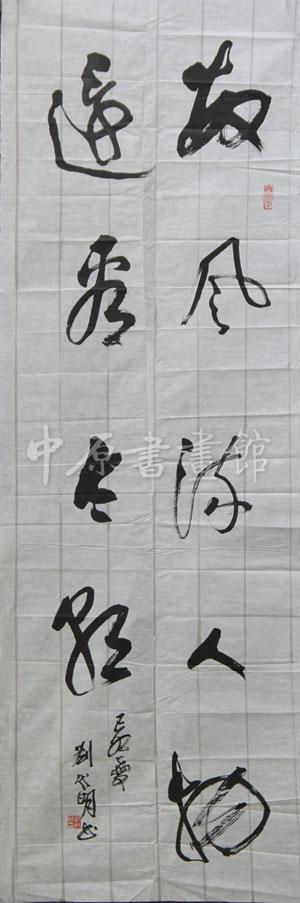 数风流人物
還看今朝
劉代明书
中原書畫館